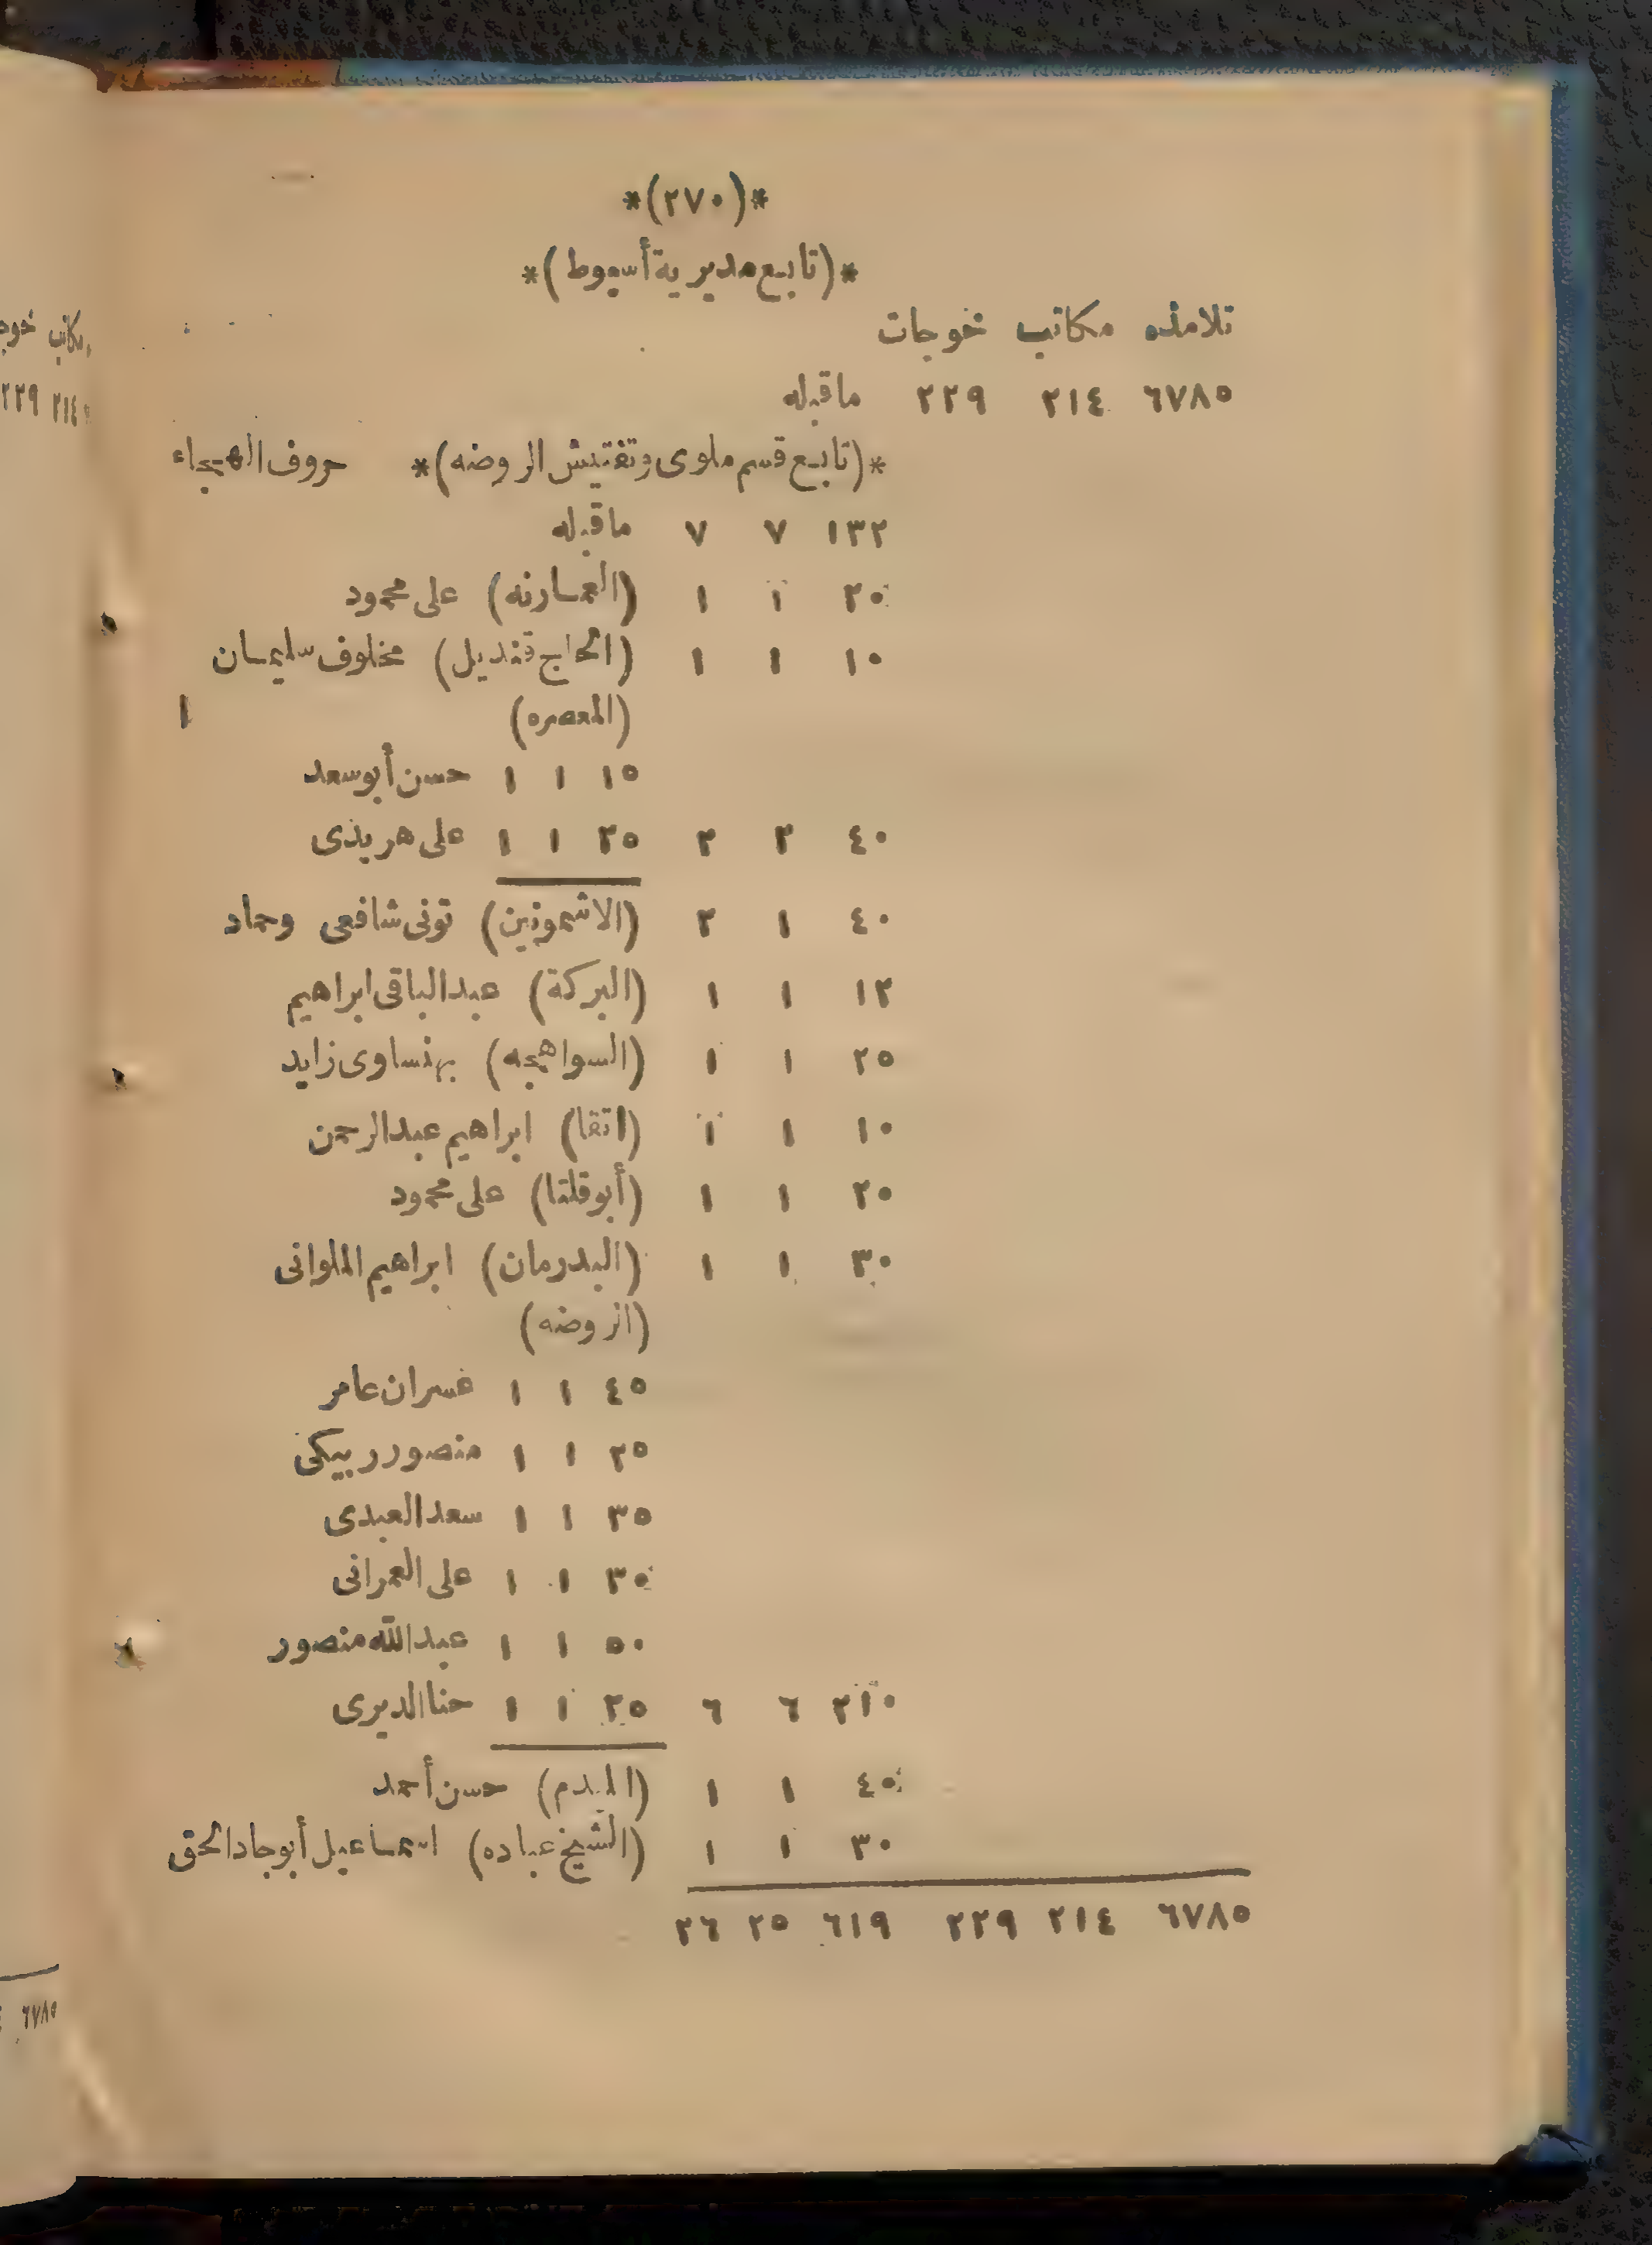 *(٢٧٠)*
*(تابع مديرية أسيوط)*
تلامذه مكاتب خوجات
٦٧٨٥ ٢١٤ ٢٢٩ ماقبله
*(تابع قسم ملوى وتفتيش الروضه)* حروف الهجاء
١٣٢ ٧ ٧ ماقبله
٢٠ ١ ١ (العمارنه) على محمود
١٠ ١ ١ (الحاج قنديل) مخلوف سليمان
(المعصره) ا
١٥ ١ ١ حسن أبوسعد
٤٠ ٢ ٢ ٢٥ ١ ١ على هريدى
٤٠ ١ ٢ (الاشمونين) تونى شافعى وحماد
١٢ ١ ١ (البركة) عبدالباقى ابراهيم
٢٥ ١ ١ (السواهجه) بهنساوى زايد
١٠ ١ ١ (اتقا) ابراهيم عبدالرحمن
٢٠ ١ ١ (أبوقلتا) على محمود
٣٠ ١ ١ (البدرمان) ابراهيم الملوانى
(الروضه)
٤٥ ١ ١ عامر
٢٥ ١ ١ منصور ربيكى
٣٥ ١ ١ سعد العبدى
٣٠ ١ ١ على العمرانى
٥٠ ١ ١ عبدالله منصور
٢١٠ ٦ ٦ ٢٥ ١ ١ حنا الديرى
٤٠ ١ ١ حسن أحمد
٣٠ ١ ١ (الشيخ عباده) اسماعيل أبوجادالحق
٦٧٨٥ ٢١٤ ٢٢٩ ٦١٩ ٢٥ ٢٦
مكاتب
٢١٤ ٢٢٩
٦٧٨٥